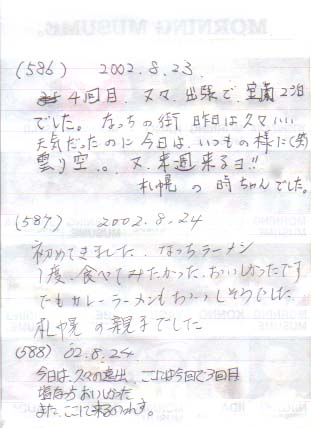 MORNING MUSUME。
(586) 2002.8.23.
4回目. 又々.出張で.室蘭2泊
でした。なっちの街 昨日は久々いい
天気だったのに今日は.いつもの様に(笑)
曇り空.。 又.来週来るヨ!!
札幌の時ちゃんでした。
(587) 2002.8.24
初めてきました.なっちラーメン
1度.食べてみたかった.おいしかったです
でもカレーラーメンもおいしそうでした.
札幌の親子でした
(588) 02.8.24
今日は.久々の遠出.ここは今回で3回目
おいしかった
また.ここに来るのれす。